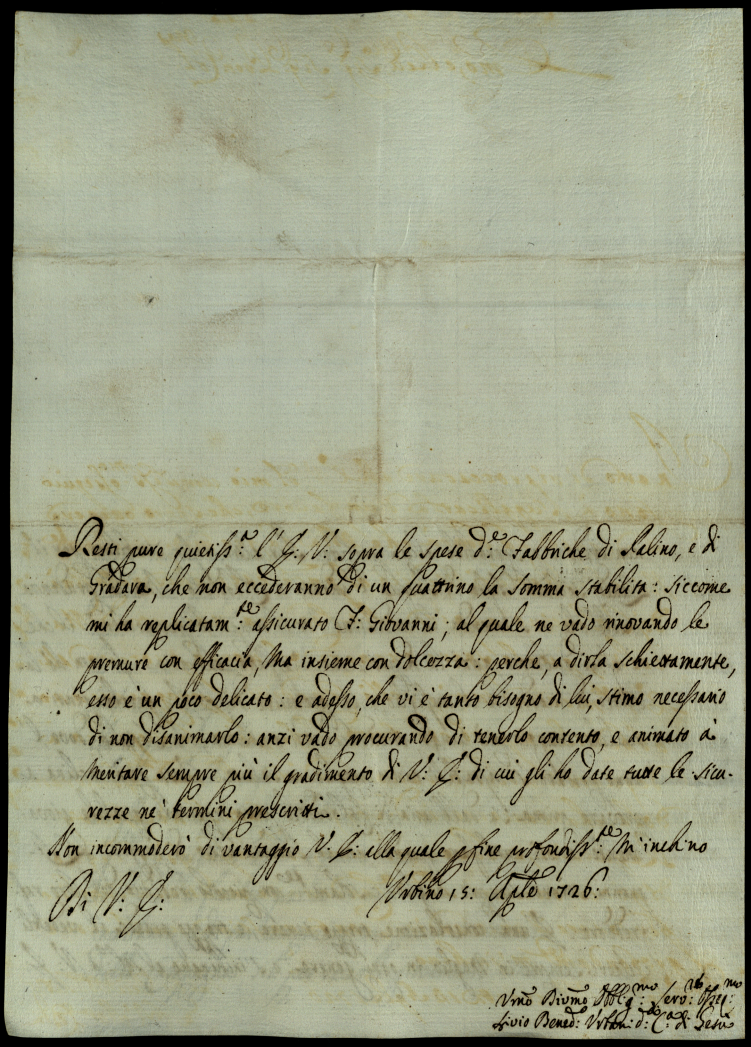 Resti pure quietiss:ª l'E: V: sopra le spese d:ᵉ Fabbriche di Salino, e di
Gradara, che non eccederanno di un quattrino la somma stabilita: siccome
mi ha replicatam:ᵗᵉ assicurato F: Giovanni; al quale ne vado rinovando le
premure con efficacia, ma insieme con dolcezza: perche, a dirla schiettamente,
esso è un poco delicato: e adesso, che vi è tanto bisogno di lui, stimo necessario
di non disanimarlo: anzi vado procurando di tenerlo contento, e animato à
meritare sempre più il gradimento di V: E: di cui gli ho date tutte le sicu-
rezze ne' termini prescritti.
Non incommoderò di vantaggio V. E: alla quale p fine profondiss:ᵗᵉ m'inchino
Di V: E: Urbino 15: Aple 1726:
Umo Divmo Obblig:ᵐᵒ Serv:ʳᵉ Osseq:ᵐᵒ
Livio Bened: Urbani d:ª C:ª di Gesù